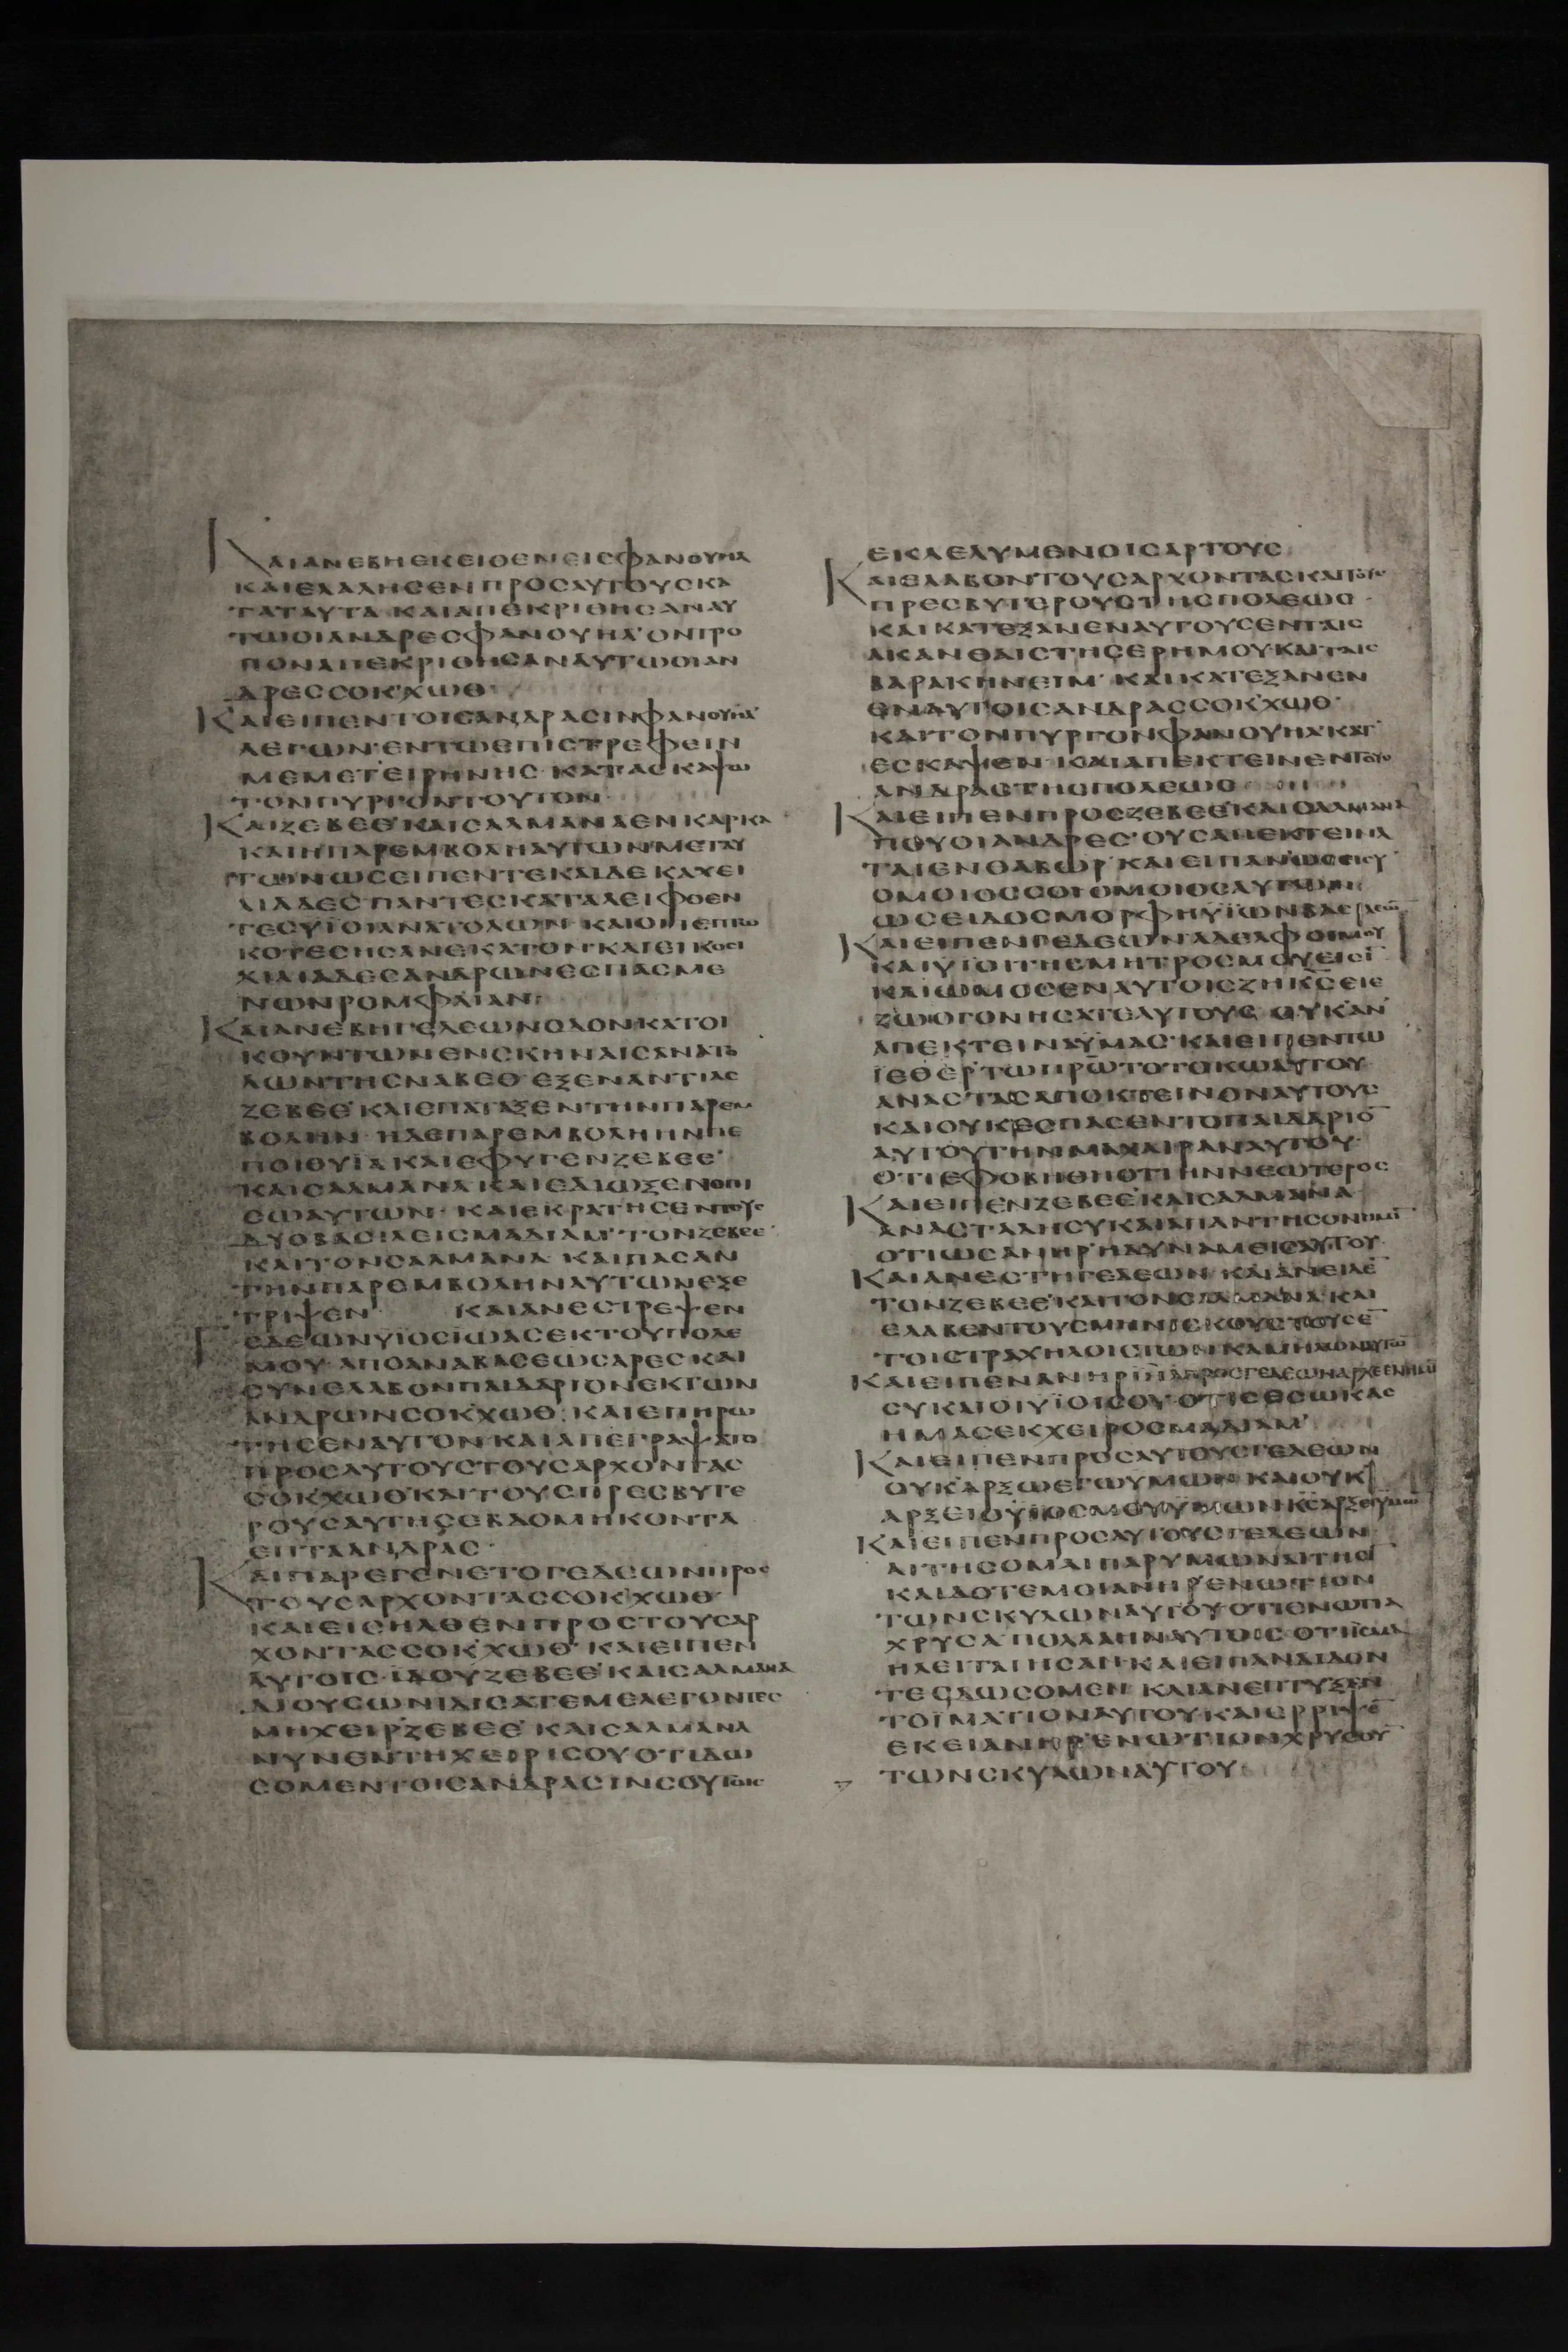 ΚΑΙΑΝΕΒΗΕΚΕΙΘΕΝΕΙCΦΑΝΟΥΗΛ
ΚΑΙΕΛΑΛΗCΕΝΠΡΟCΑΥΤΟΥCΚΑ
ΤΑΤΑΥΤΑ·ΚΑΙΑΠΕΚΡΙΘΗCΑΝΑΥ
ΤΩΟΙΑΝΔΡΕCΦΑΝΟΥΗΛ'ΟΝΤΡΟ
ΠΟΝΑΠΕΚΡΙΘΗCΑΝΑΥΤΩΟΙΑΝ
ΔΡΕCCΟΚ'ΧΩΘ·
ΚΑΙΕΙΠΕΝΤΟΙCΑΝΔΡΑCΙΝΦΑΝΟΥΗΛ'
ΛΕΓΩΝ·ΕΝΤΩΕΠΙCΤΡΕΦΕΙΝ
ΜΕΜΕΤΕΙΡΗΝΗC·ΚΑΤΑCΚΑΨΩ
ΤΟΝΠΥΡΓΟΝΤΟΥΤΟΝ·
ΚΑΙΖΕΒΕΕ'ΚΑΙCΑΛΜΑΝΑΕΝΚΑΡΚΑ
ΚΑΙΗΠΑΡΕΜΒΟΛΗΑΥΤΩΝΜΕΤΑΥ
ΤΩΝΩCΕΙΠΕΝΤΕΚΑΙΔΕΚΑΧΕΙ
ΛΙΑΔΕC·ΠΑΝΤΕCΚΑΤΑΛΕΙΦΘΕΝ
ΤΕCΥΪΟΙΑΝΑΤΟΛΩΝ·ΚΑΙΟΙΠΕΠΤΩ
ΚΟΤΕCΗCΑΝΕΚΑΤΟΝΚΑΙΕΙΚΟCΙ
ΧΙΛΙΑΔΕCΑΝΔΡΩΝΕCΠΑCΜΕ
ΝΩΝΡΟΜΦΑΙΑΝ·
ΚΑΙΑΝΕΒΗΓΕΔΕΩΝΟΔΟΝΚΑΤΟΙ
ΚΟΥΝΤΩΝΕΝCΚΗΝΑΙCΑΝΑΤΟ
ΛΩΝΤΗCΝΑΒΕΘ·ΕΞΕΝΑΝΤΙΑC
ΖΕΒΕΕ'ΚΑΙΕΠΑΤΑΞΕΝΤΗΝΠΑΡΕΜ
ΒΟΛΗΝ·ΗΔΕΠΑΡΕΜΒΟΛΗΗΝΠΕ
ΠΟΙΘΥΙΑΚΑΙΕΦΥΓΕΝΖΕΒΕΕ'
ΚΑΙCΑΛΜΑΝΑΚΑΙΕΔΙΩΞΕΝΟΠΙ
CΩΑΥΤΩΝ·ΚΑΙΕΚΡΑΤΗCΕΝΤΟΥC
ΔΥΟΒΑCΙΛΕΙCΜΑΔΙΑΜ'ΤΟΝΖΕΒΕΕ'
ΚΑΙΤΟΝCΑΛΜΑΝΑ·ΚΑΙΠΑCΑΝ
ΤΗΝΠΑΡΕΜΒΟΛΗΝΑΥΤΩΝΕΞΕ
ΤΡΙΨΕΝ· ΚΑΙΑΝΕCΤΡΕΨΕΝ
ΓΕΔΕΩΝΥΪΟCΪΩΑCΕΚΤΟΥΠΟΛΕ
ΜΟΥ·ΑΠΟΑΝΑΒΑCΕΩCΑΡΕCΚΑΙ
CΥΝΕΛΑΒΟΝΠΑΙΔΑΡΙΟΝΕΚΤΩΝ
ΑΝΔΡΩΝCΟΚ'ΧΩΘ·ΚΑΙΕΠΗΡΩ
ΤΗCΕΝΑΥΤΟΝ·ΚΑΙΑΠΕΓΡΑΨΑΤΟ
ΠΡΟCΑΥΤΟΥCΤΟΥCΑΡΧΟΝΤΑC
CΟΚ'ΧΩΘ'ΚΑΙΤΟΥCΠΡΕCΒΥΤΕ
ΡΟΥCΑΥΤΗCΕΒΔΟΜΗΚΟΝΤΑ
ΕΠΤΑΑΝΔΡΑC·
ΚΑΙΠΑΡΕΓΕΝΕΤΟΓΕΔΕΩΝΠΡΟC
ΤΟΥCΑΡΧΟΝΤΑCCΟΚ'ΧΩΘ'
ΚΑΙΕΙCΗΛΘΕΝΠΡΟCΤΟΥCΑΡ
ΧΟΝΤΑCCΟΚ'ΧΩΘ'·ΚΑΙΕΙΠΕΝ
ΑΥΤΟΙC·ΪΔΟΥΖΕΒΕΕ'ΚΑΙCΑΛΜΑΝΑ
ΔΙΟΥCΩΝΙΔΙCΑΤΕΜΕΛΕΓΟΝΤΕC
ΜΗΧΕΙΡ'ΖΕΒΕΕ'ΚΑΙCΑΛΜΑΝΑ
ΝΥΝΕΝΤΗΧΕΙΡΙCΟΥΟΤΙΔΩ
CΟΜΕΝΤΟΙCΑΝΔΡΑCΙΝCΟΥΤΟΙC
ΕΚΛΕΛΥΜΕΝΟΙCΑΡΤΟΥC
ΚΑΙΕΛΑΒΟΝΤΟΥCΑΡΧΟΝΤΑCΚΑΙΤΟΥC
ΠΡΕCΒΥΤΕΡΟΥCΤΗCΠΟΛΕΩC·
ΚΑΙΚΑΤΕΞΑΝΕΝΑΥΤΟΥCΕΝΤΑΙC
ΑΚΑΝΘΑΙCΤΗCΕΡΗΜΟΥΚΑΙΤΑΙC
ΒΑΡΑΚΗΝΕΙΜ·ΚΑΙΚΑΤΕΞΑΝΕΝ
ΕΝΑΥΤΟΙCΑΝΔΡΑCCΟΚ'ΧΩΘ·
ΚΑΙΤΟΝΠΥΡΓΟΝΦΑΝΟΥΗΛΚΑΤ
ΕCΚΑΨΕΝ·ΚΑΙΑΠΕΚΤΕΙΝΕΝΤΟΥC
ΑΝΔΡΑCΤΗCΠΟΛΕΩC
ΚΑΙΕΙΠΕΝΠΡΟCΖΕΒΕΕ'ΚΑΙCΑΛΜΑΝΑ
ΠΟΥΟΙΑΝΔΡΕC'ΟΥCΑΠΕΚΤΕΙΝΑ
ΤΑΙΕΝΘΑΒΩΡ'ΚΑΙΕΙΠΑΝΩCCΕΙCΥ
ΟΜΟΙΟCCΟΙΟΜΟΙΟCΑΥΤΩΝ
ΩCΕΙΔΟCΜΟΡΦΗΥΪΩΝΒΑCΙΛΕΩ̄
ΚΑΙΕΙΠΕΝΓΕΔΕΩΝΑΔΕΛΦΟΙΜΟΥ
ΚΑΙΥΪΟΙΤΗCΜΗΤΡΟCΜΟΥΕΙCῙ
ΚΑΙΩΜΟCΕΝΑΥΤΟΙCΖΗΚ̅C̅ΕΙΕ
ΖΩΟΓΟΝΗCΑΤΕΑΥΤΟΥC·ΟΥΚΑΝ
ΑΠΕΚΤΕΙΝΑΫΜΑC·ΚΑΙΕΙΠΕΝΤΩ
ΪΕΘΕΡ'ΤΩΠΡΩΤΟΤΟΚΩΑΥΤΟΥ
ΑΝΑCΤΑCΑΠΟΚΤΕΙΝΟΝΑΥΤΟΥC
ΚΑΙΟΥΚΕCΠΑCΕΝΤΟΠΑΙΔΑΡΙΟ̄
ΑΥΤΟΥΤΗΝΜΑΧΑΙΡΑΝΑΥΤΟΥ·
ΟΤΙΕΦΟΒΗΘΗΟΤΙΗΝΝΕΩΤΕΡΟC
ΚΑΙΕΙΠΕΝΖΕΒΕΕ'ΚΑΙCΑΛΜΑΝΑ
ΑΝΑCΤΑΔΗCΥΚΑΙΑΠΑΝΤΗCΟΝΗΜῙ
ΟΤΙΩCΑΝΗΡ'ΗΔΥΝΑΜΕΙCΑΥΤΟΥ
ΚΑΙΑΝΕCΤΗΓΕΔΕΩΝ·ΚΑΙΑΝΕΙΛΕ̄
ΤΟΝΖΕΒΕΕ'ΚΑΙΤΟΝCΑΛΜΑΝΑ·ΚΑΙ
ΕΛΑΒΕΝΤΟΥCΜΗΝΙCΚΟΥCΤΟΥCΕ̄
ΤΟΙCΤΡΑΧΗΛΟΙCΤΩΝΚΑΜΗΛΩΝΑΥΤΩ̄
ΚΑΙΕΙΠΕΝΑΝΗΡΙ̅Η̅Λ̅ΠΡΟCΓΕΔΕΩΝΑΡΧΕΕΝΗΜῙ
CΥΚΑΙΟΙΥΪΟΙCΟΥ·ΟΤΙCΕCΩΚΑC
ΗΜΑCΕΚΧΕΙΡΟCΜΑΔΙΑΜ'
ΚΑΙΕΙΠΕΝΠΡΟCΑΥΤΟΥCΓΕΔΕΩΝ
ΟΥΚ'ΑΡΞΩΕΓΩΥΜΩΝ·ΚΑΙΟΥΚ
ΑΡΞΕΙΟΥΪΟCΜΟΥΫΜΩΝΚ̅C̅ΑΡΞΕΙΫΜΩ̄
ΚΑΙΕΙΠΕΝΠΡΟCΑΥΤΟΥCΓΕΔΕΩΝ
ΑΙΤΗCΟΜΑΙΠΑΡΥΜΩΝΑΙΤΗCῙ
ΚΑΙΔΟΤΕΜΟΙΑΝΗΡ'ΕΝΩΤΙΟΝ
ΤΩΝCΚΥΛΩΝΑΥΤΟΥΟΤΙΕΝΩΤΙΑ
ΧΡΥCΑ'ΠΟΛΛΑΗΝΑΥΤΟΙC·ΟΤΙΪCΜΑ
ΗΛΕΙΤΑΙΗCΑΝ·ΚΑΙΕΙΠΑΝΔΙΔΟΝ
ΤΕCΔΩCΟΜΕΝ·ΚΑΙΑΝΕΠΤΥΞΕΝ
ΤΟΪΜΑΤΙΟΝΑΥΤΟΥΚΑΙΕΡΡΙΨΕ̄
ΕΚΕΙΑΝΗΡ'ΕΝΩΤΙΟΝΧΡΥCΟῩ
ΤΩΝCΚΥΛΩΝΑΥΤΟΥ·